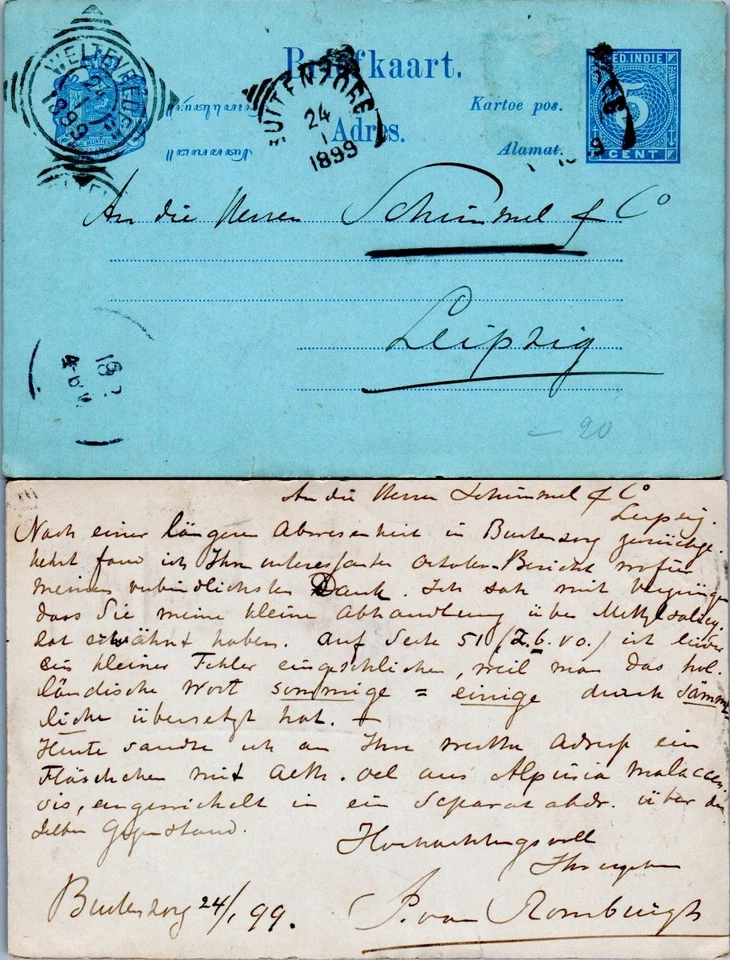 Briefkaart.
Kartoe pos.
Adres.
Alamat.
NED.INDIE
5
CENT
WELTEVREDEN
24
1
1899
BUITENZORG
24
1
1899
An die Herren Schimmel & Co
Leipzig
20
An die Herren Schimmel & Co
Leipzig.
Nach einer längeren Abwesenheit in Buitenzorg zurückge-
kehrt fand ich Ihren interessanten October-Bericht wofür
meinen verbindlichsten Dank. Ich sah mit Vergnügen
dass Sie meine kleine Abhandlung über Methylsalicy-
lat erwähnt haben. Auf Seite 51 (Z. 6. v o.) ist leider
ein kleiner Fehler eingeschlichen, weil man das hol-
ländische Wort sommige = einige durch sämmt-
liche übersetzt hat. —
Heute sandte ich an Ihre werthe Adresse ein
Fläschchen mit aeth. oel aus Alpinia malaccen-
sis, eingewickelt in ein Separatabdr. über den
selben Gegenstand.
Hochachtungsvoll
Ihr ergebener
Buitenzorg 24/1 99.
P. van Romburgh